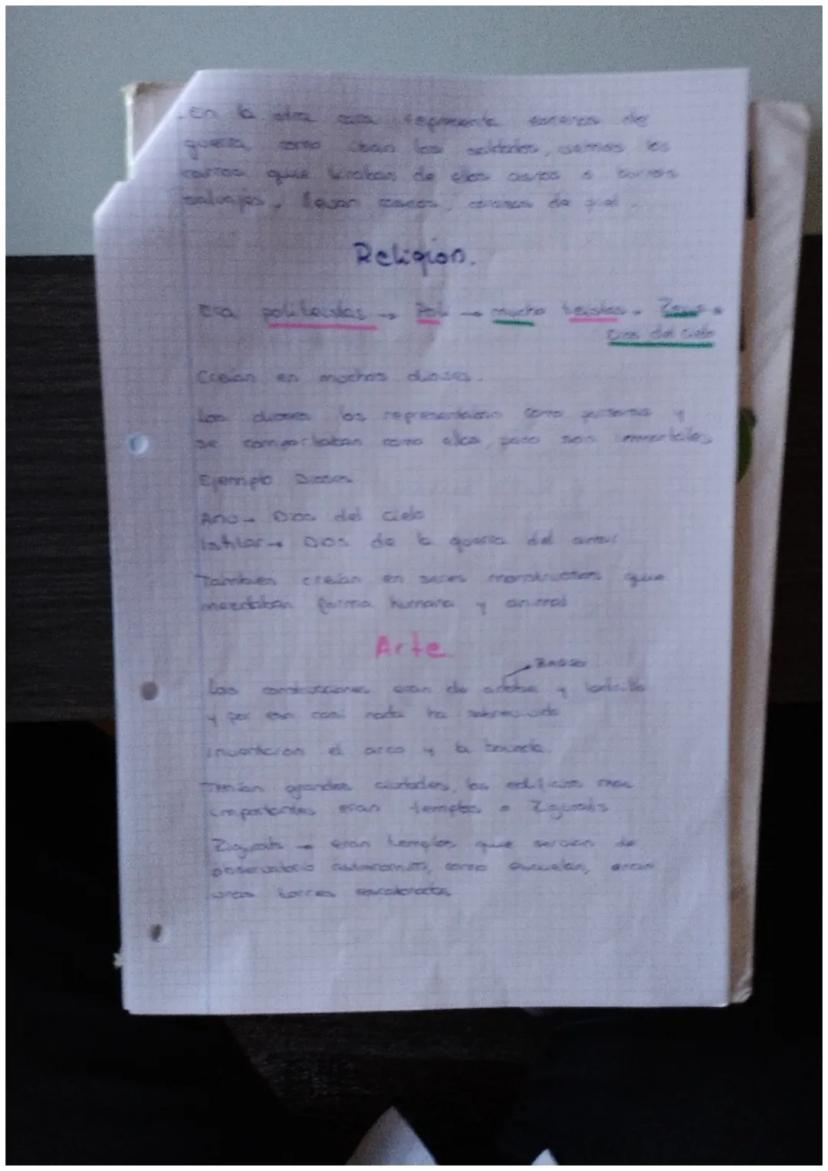 .En la otra cara representa escenas de
guerra como iban los soldados, vemos los
carros que tiraban de ellos asnos o burros
salvajes, llevan cascos, de piel.
Religión.
Era politeistas → Poli → mucho teistas. Zeus →
Dios del cielo
Creían en muchos dioses.
Los dioses los representaban como personas y
se comportaban como ellos, pero son inmortales
Ejemplo Dioses
Anu → Dios del cielo
Isthtar → Dios de la guerra del amor
Tambien creían en seres monstruosos que
mezclaban forma humana y animal
Arte
Barro
Las construcciones eran de adobe y ladrillo
y por eso casi nada ha sobrevivido
inventaron el arco y la bóveda
Tenían grandes ciudades, los edificios mas
importantes eran templos o Zigurats
Zigurats → eran templos que servían de
observatorio astronomico, como escuelas, eran
unas torres escalonadas